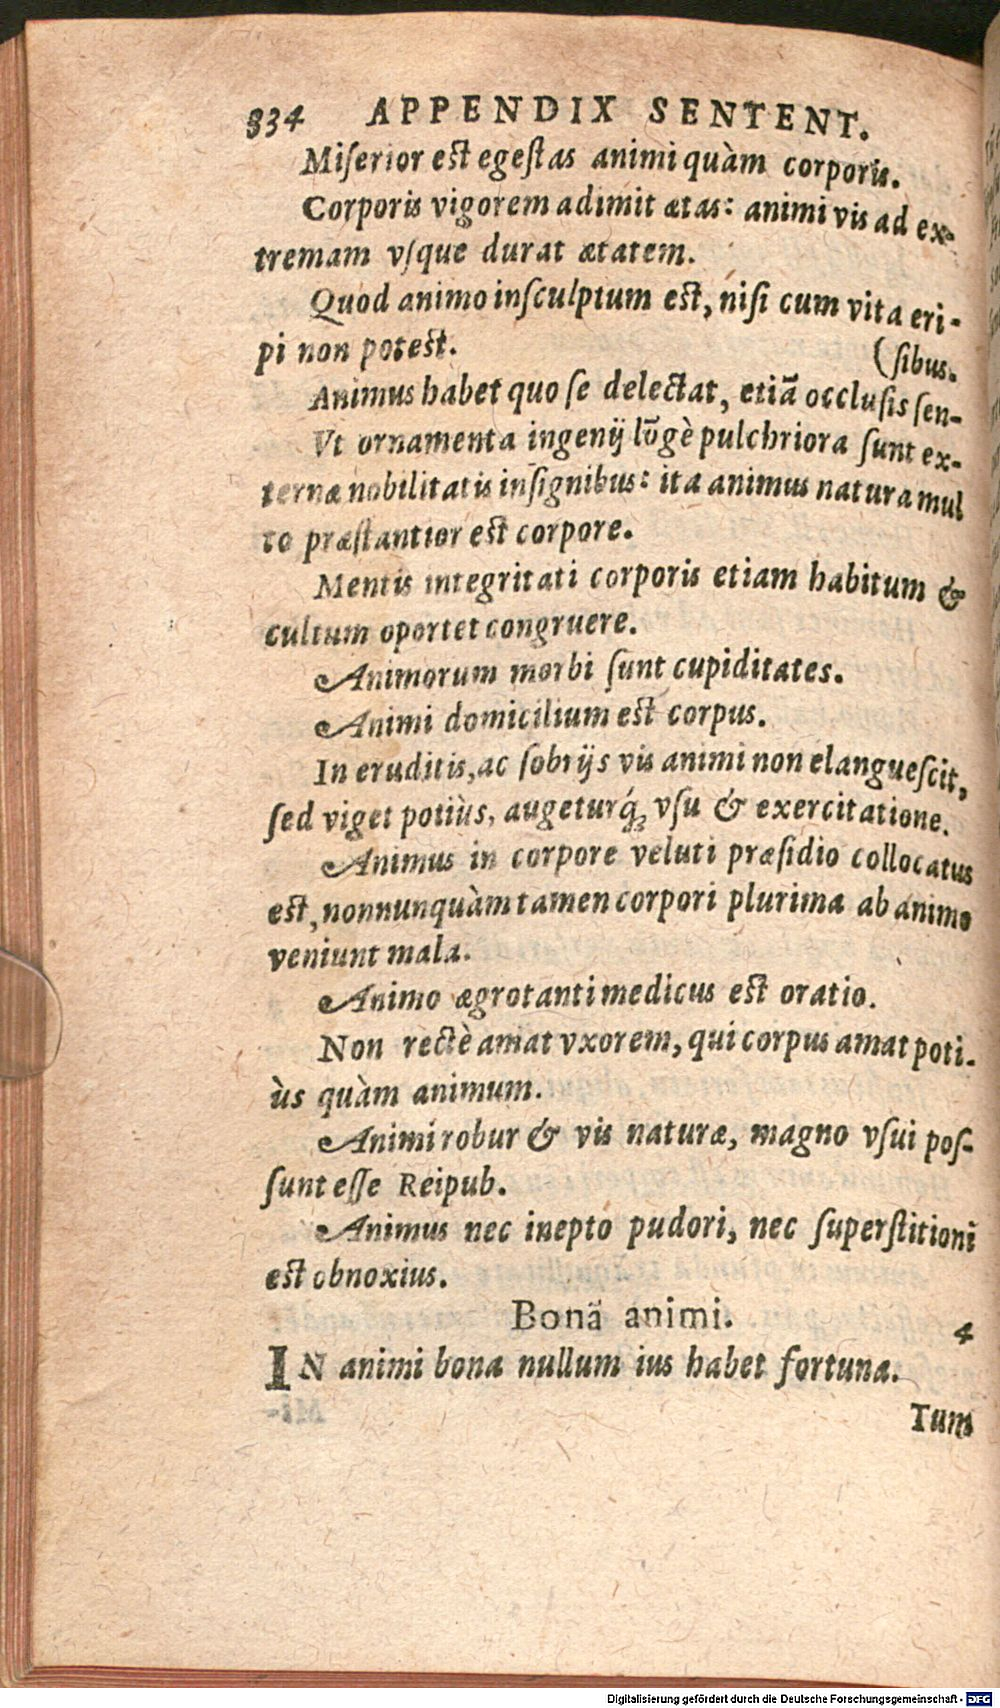 334 APPENDIX SENTENT.
Miſerior est egeſtas animi quàm corporis.
Corporis vigorem adimit ætas: animi vis ad ex-
tremam vſque durat ætatem.
Quod animo inſculptum est, niſi cum vita eri-
pi non potest. (ſibus.
Animus habet quo ſe delectat, etiā occluſis ſen-
Vt ornamenta ingenij lōgè pulchriora ſunt ex-
ternæ nobilitatis inſignibus: ita animus natura mul
to præſtantior est corpore.
Mentis integritati corporis etiam habitum &
cultum oportet congruere.
Animorum morbi ſunt cupiditates.
Animi domicilium est corpus.
In eruditis, ac ſobrijs vis animi non elangueſcit,
ſed viget potiùs, augeturq́; vſu & exercitatione.
Animus in corpore veluti præſidio collocatus
est, nonnunquàm tamen corpori plurima ab animo
veniunt mala.
Animo ægrotanti medicus est oratio.
Non rectè amat vxorem, qui corpus amat poti-
ùs quàm animum.
Animi robur & vis naturæ, magno vſui poſ-
ſunt eſſe Reipub.
Animus nec inepto pudori, nec ſuperſtitioni
est obnoxius.
Bonā animi. 4
IN animi bona nullum ius habet fortuna.
Tum
Digitalisierung gefördert durch die Deutsche Forschungsgemeinschaft - DFG